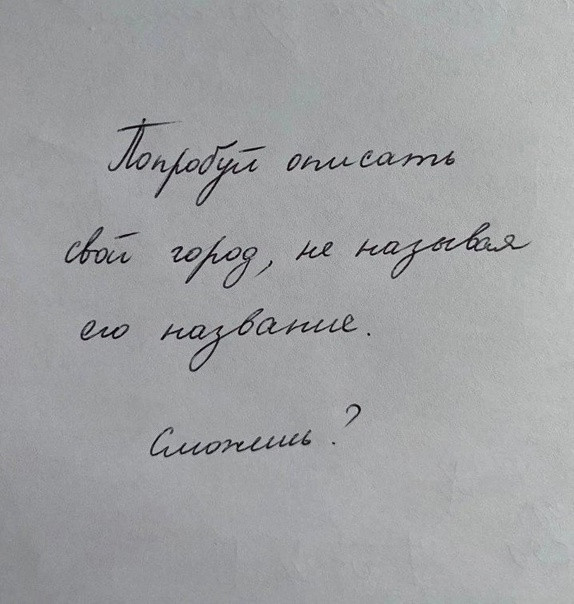 Попробуй описать
свой город, не называя
его название.
Сможешь?